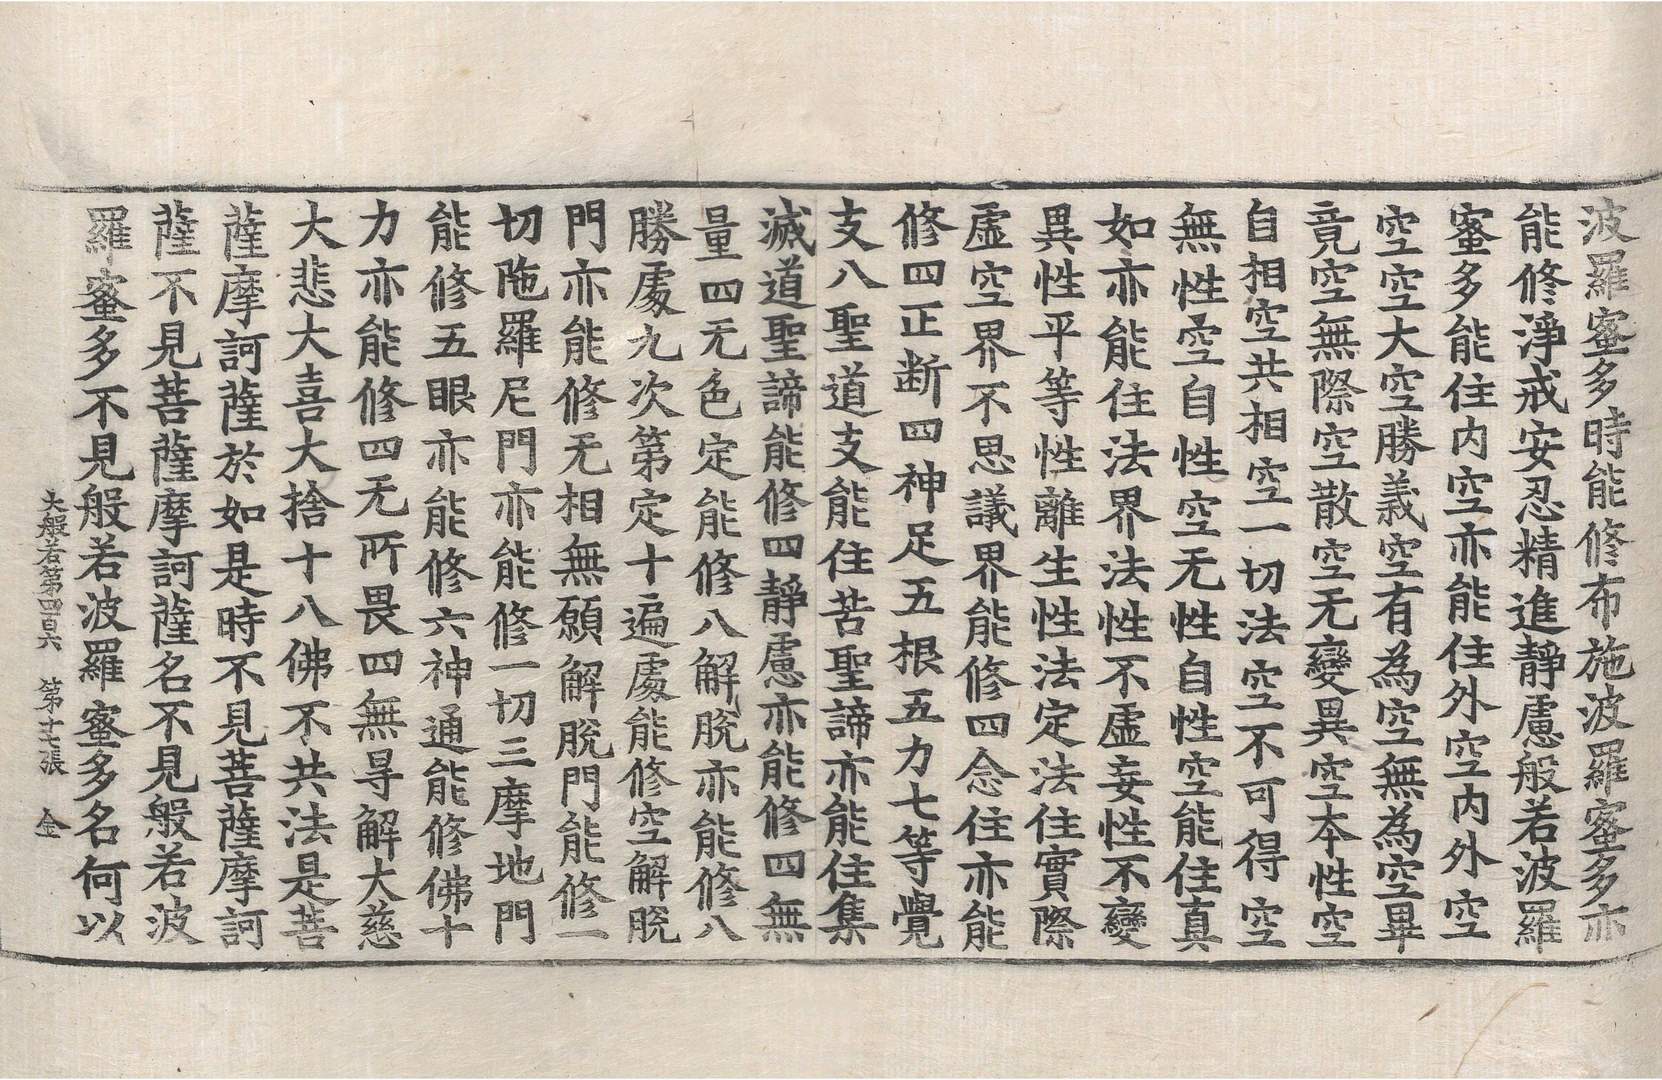 波羅蜜多時能修布施波羅蜜多亦
能修淨戒安忍精進靜慮般若波羅
蜜多能住内空亦能住外空内外空
空空大空勝義空有為空無為空畢
竟空無際空散空无變異空本性空
自相空共相空一切法空不可得空
無性空自性空无性自性空能住真
如亦能住法界法性不虛妄性不變
異性平等性離生性法定法住實際
虛空界不思議界能修四念住亦能
修四正断四神足五根五力七等覺
支八聖道支能住苦聖諦亦能住集
滅道聖諦能修四靜慮亦能修四無
量四无色定能修八解脫亦能修八
勝處九次第定十遍處能修空解脫
門亦能修无相無願解脫門能修一
切陁羅尼門亦能修一切三摩地門
能修五眼亦能修六神通能修佛十
力亦能修四无所畏四無㝵解大慈
大悲大喜大捨十八佛不共法是菩
薩摩訶薩於如是時不見菩薩摩訶
薩不見菩薩摩訶薩名不見般若波
羅蜜多不見般若波羅蜜多名何以
大般若第四百六 第十七張 金